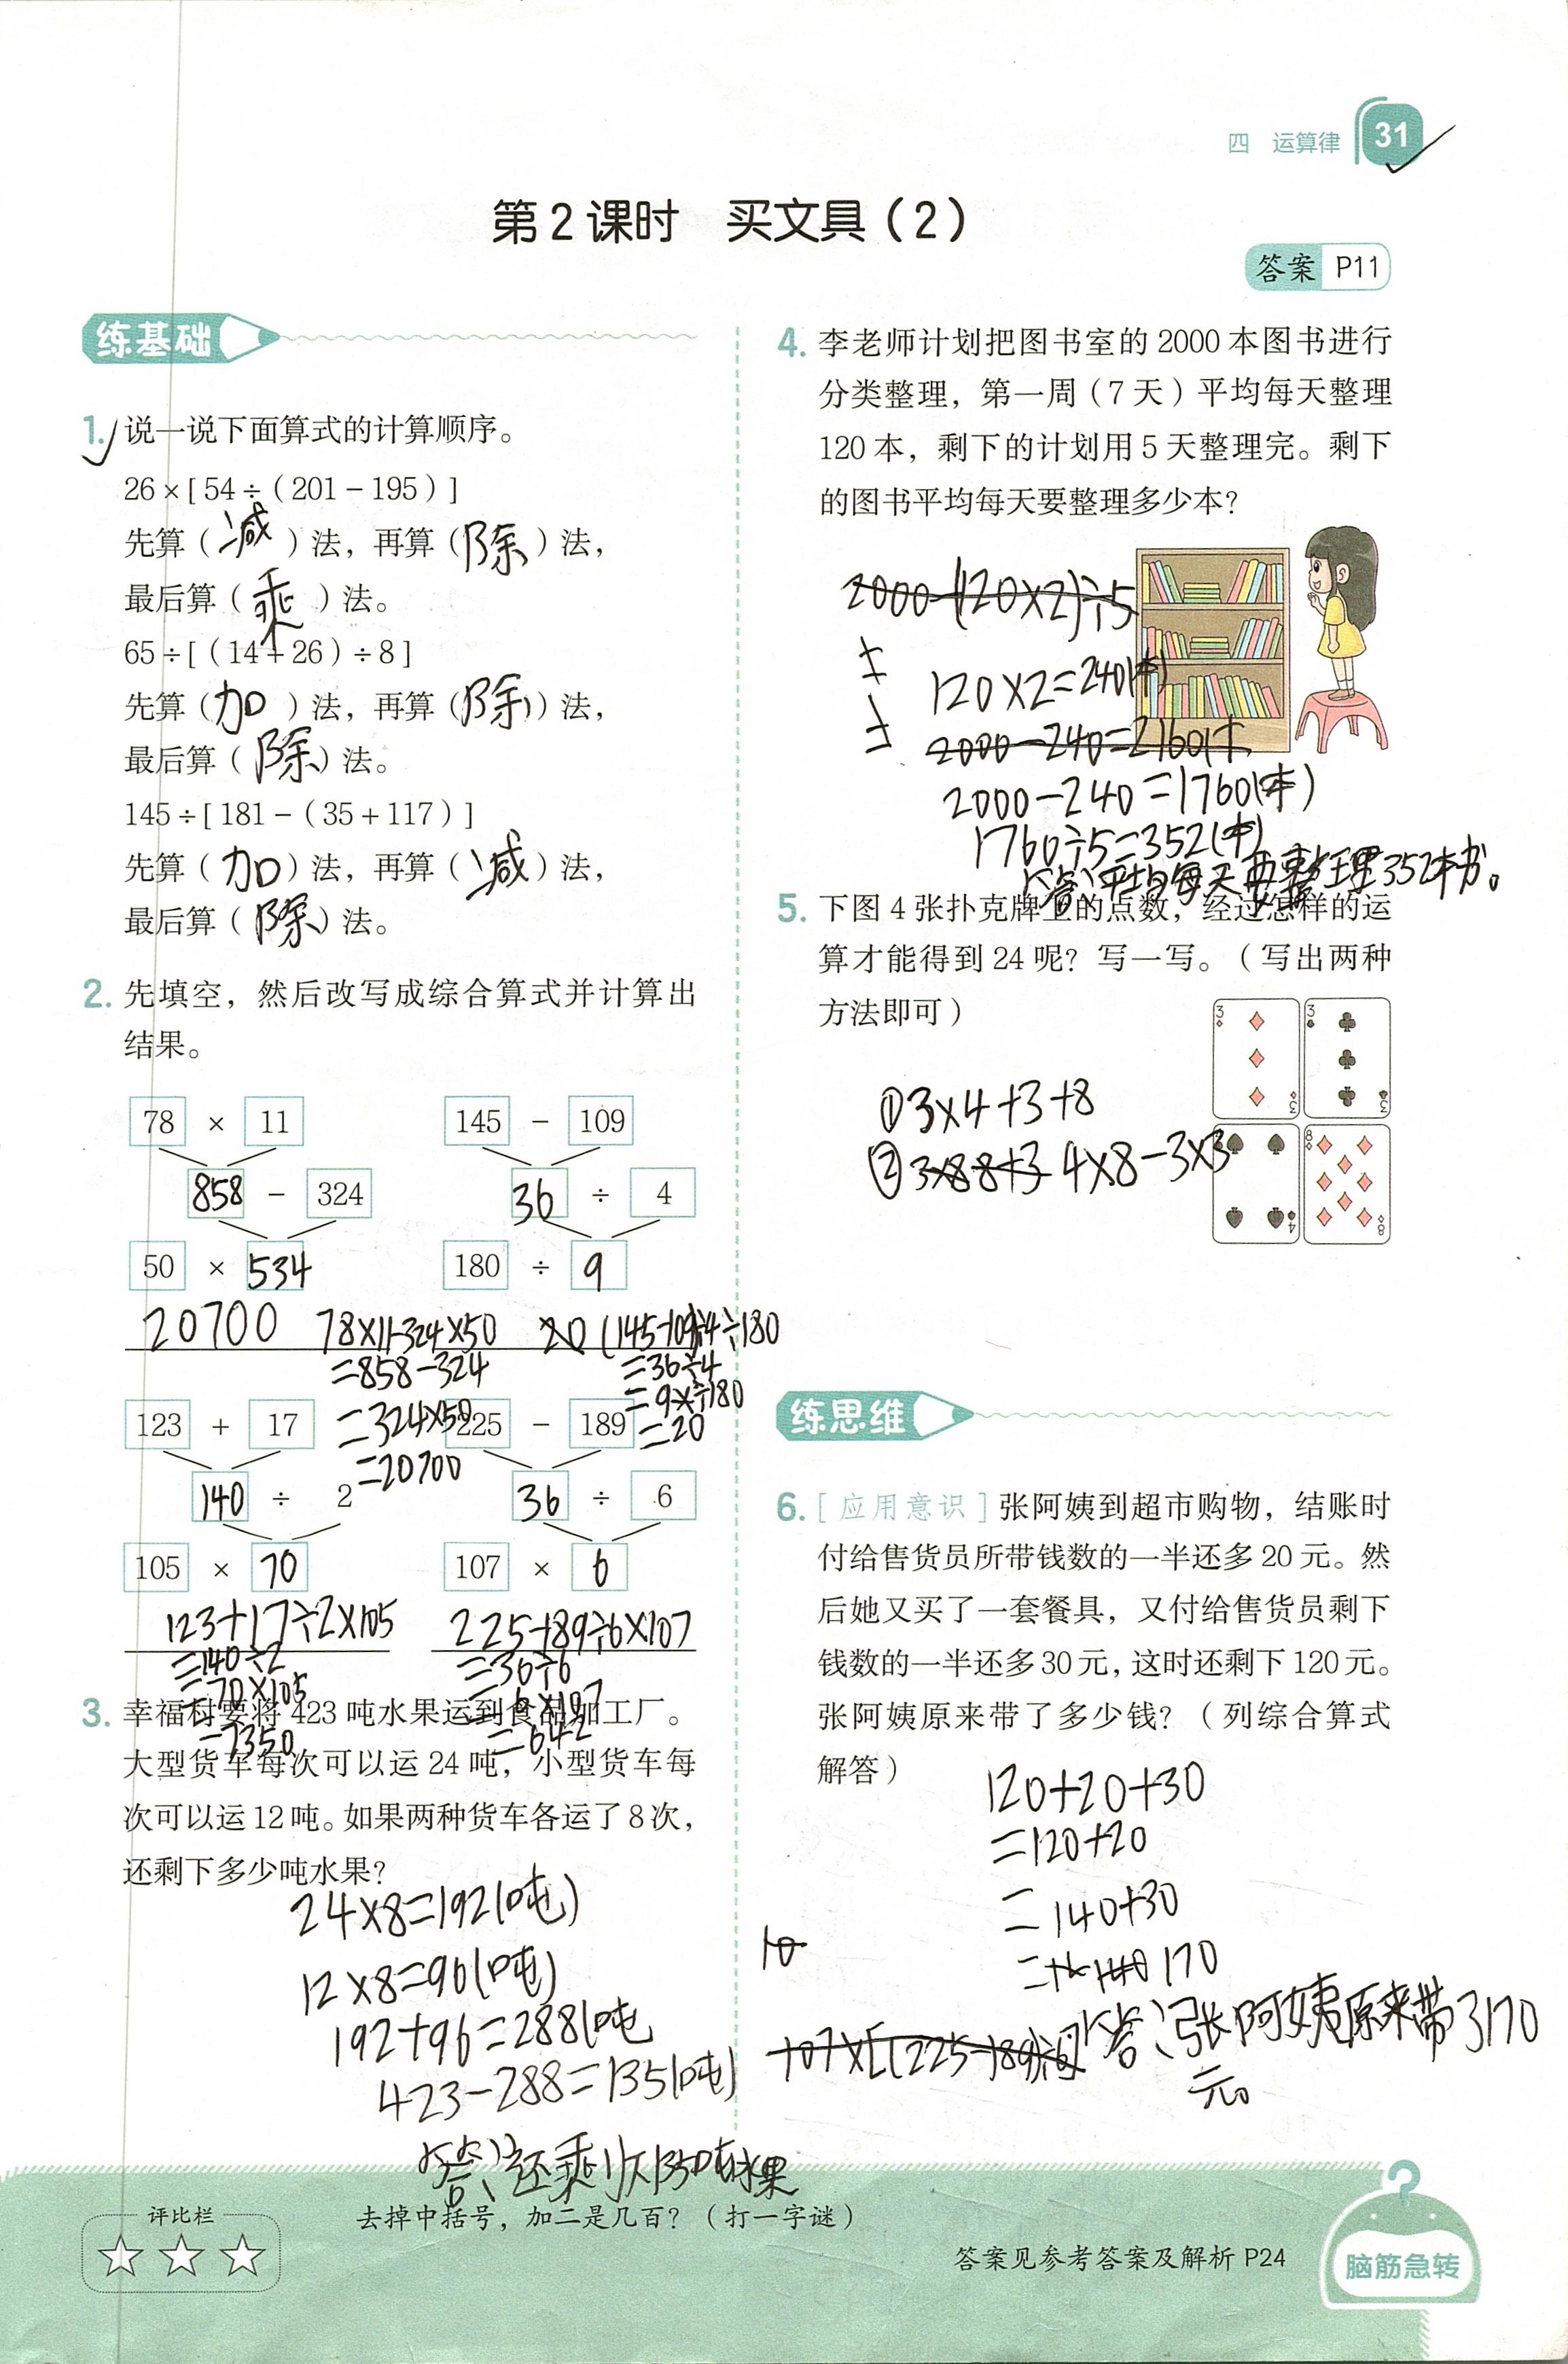 四 运算律 31
第2课时 买文具（2）
答案 P11
练基础
1. 说一说下面算式的计算顺序。
26×[54÷（201－195）]
先算（减）法，再算（除）法，
最后算（乘）法。
65÷[（14＋26）÷8]
先算（加）法，再算（除）法，
最后算（除）法。
145÷[181－（35＋117）]
先算（加）法，再算（减）法，
最后算（除）法。
2. 先填空，然后改写成综合算式并计算出
结果。
78 × 11
858 － 324
50 × 534
20700
78×11-324×50
=858-324
=324×50
=20700
145 － 109
36 ÷ 4
180 ÷ 9
20 (145-109)÷4÷180
=36÷4
=9×÷180
=20
123 ＋ 17
140 ÷ 2
105 × 70
123+17÷2×105
=140÷2
=70×105
=7350
225 － 189
36 ÷ 6
107 × 6
225-189÷6×107
=36÷6
=6×107
=642
3. 幸福村要将423吨水果运到食品加工厂。
大型货车每次可以运24吨，小型货车每
次可以运12吨。如果两种货车各运了8次，
还剩下多少吨水果？
24×8=192(吨)
12×8=96(吨)
192+96=288(吨
423-288=135(吨)
答：还乘下135吨水果
4. 李老师计划把图书室的2000本图书进行
分类整理，第一周（7天）平均每天整理
120本，剩下的计划用5天整理完。剩下
的图书平均每天要整理多少本？
2000-(120×2)÷5
120×2=240(本)
2000-240=2160(本
2000-240=1760(本)
1760÷5=352(本)
答：平均每天要整理352本书。
5. 下图4张扑克牌上的点数，经过怎样的运
算才能得到24呢？写一写。（写出两种
方法即可）
①3×4+3+8
②3×8 8+3 4×8-3×3
3 3
4 8
练思维
6. [应用意识]张阿姨到超市购物，结账时
付给售货员所带钱数的一半还多20元。然
后她又买了一套餐具，又付给售货员剩下
钱数的一半还多30元，这时还剩下120元。
张阿姨原来带了多少钱？（列综合算式
解答）
120+20+30
=120+20
=140+30
170
10
107×[(225-189)÷6]
答：张阿姨原来带了170
元。
评比栏
去掉中括号，加二是几百？（打一字谜）
答案见参考答案及解析 P24
脑筋急转